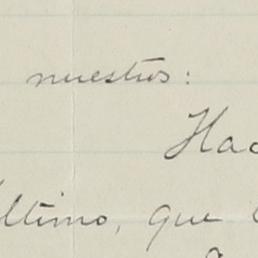 nuestros:
Hac
último, que